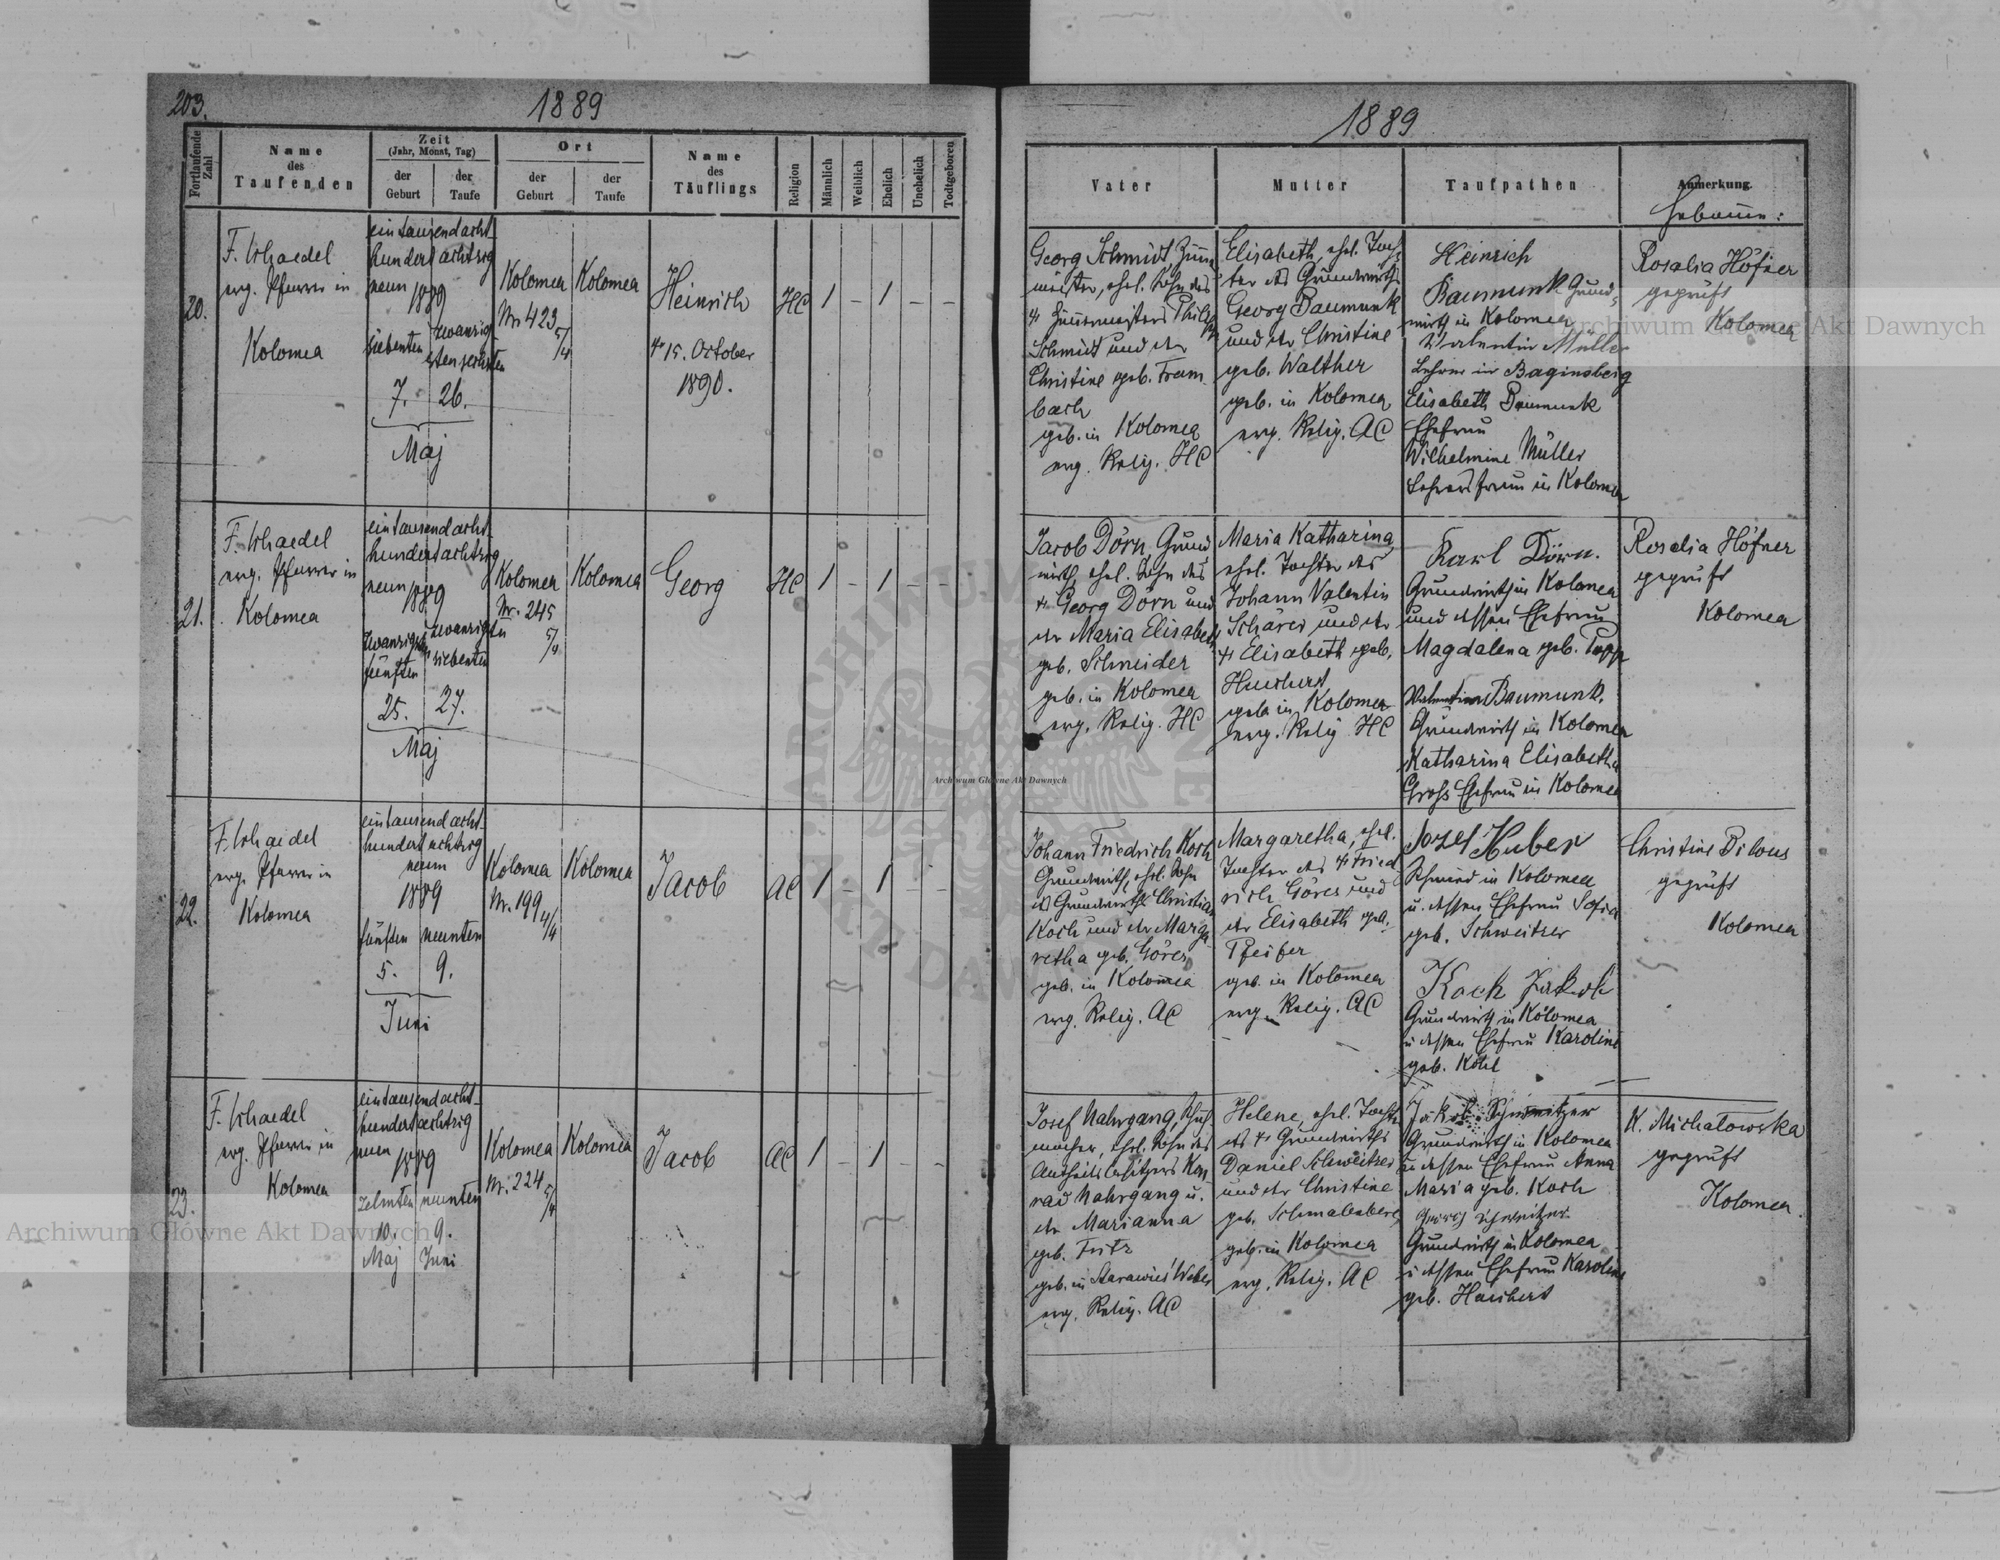 203.
1889
Fortlaufende Zahl
Name
des
Taufenden
Zeit
(Jahr, Monat, Tag)
der
Geburt
der
Taufe
Ort
der
Geburt
der
Taufe
Name
des
Täuflings
Religion
Männlich
Weiblich
Ehelich
Unehelich
Todtgeboren
20.
F. Schaedel
evg. Pfarrer in
Kolomea
eintausendacht
hundert achtzig
neun
1889
siebenten
zwanzig
sten sechsten
7. 26.
Maj
Kolomea
Nr 423 5/4
Kolomea
Heinrich
† 15. October
1890.
HC
1 – 1 – –
21.
F. Schaedel
evg. Pfarrer in
Kolomea
eintausendacht
hundertachtzig
neun
1889
zwanzigsten
fünften
siebenten
25. 27.
Maj
Kolomea
Nr. 245
5/4
Kolomea
Georg
HC
1 – 1 – –
22.
F. Schaedel
evg. Pfarrer in
Kolomea
eintausendacht
hundert achtzig
neun
1889
fünften neunten
5. 9.
Juni
Kolomea
Nr. 199 4/4
Kolomea
Jacob
AC
1 – 1 – –
23.
F. Schaedel
evg. Pfarrer in
Kolomea
eintausendacht
hundertachtzig
neun
1889
zehnten neunten
10. 9.
Maj Juni
Kolomea
Nr. 224 5/4
Kolomea
Jacob
AC
1 – 1 – –
1889
Vater
Mutter
Taufpathen
Anmerkung
Hebamme:
Georg Schmidt Zimmer
meister, ehel. Sohn des
† Zimmermeisters Philipp
Schmidt und der
Christine geb. Fram
bach
geb. in Kolomea
evg. Relig. HC
Elisabeth, ehel. Toch
ter des Grundwirths
Georg Baumunk
und der Christine
geb. Walther
geb. in Kolomea
evg. Relig. AC
Heinrich
Baumunk Grund
wirth in Kolomea
Valentin Müller
Lehrer in Baginsberg
Elisabeth Baumunk
Ehefrau
Wilhelmine Müller
Lehrersfrau in Kolomea
Rosalia Höfner
geprüft
Kolomea
Jacob Dörn, Grund
wirth, ehel. Sohn des
† Georg Dörn und
der Maria Elisabeth
geb. Schneider
geb. in Kolomea
evg. Relig. HC
Maria Katharina
ehel. Tochter des
Johann Valentin
Schärer und der
† Elisabeth geb.
geb. in Kolomea
evg. Relig HC
Karl Dörn.
Grundwirth in Kolomea
und dessen Ehefrau
Magdalena geb. Popp
Valentin Baumunk.
Grundwirth in Kolomea
Katharina Elisabetha
Gross Ehefrau in Kolomea
Rosalia Höfner
geprüft
Kolomea
Johann Friedrich Koch
Grundwirth, ehel. Sohn
des Grundwirths Christian
Koch und der Marga
retha geb. Göres
geb. in Kolomea
evg. Relig. AC
Margaretha, ehel.
Tochter des † Fried
rich Göres und
der Elisabeth geb.
Pfeifer
geb. in Kolomea
evg. Relig. AC
Josef Huber
Schmied in Kolomea
u. dessen Ehefrau Sofia
geb. Schweitzer
Koch Jakob
Grundwirth in Kolomea
u dessen Ehefrau Karoline
geb. Köhl
Christine Bilous
geprüft
Kolomea
Josef Nahrgang, Schuh
macher, ehel. Sohn des
Antheilsbesitzers Kon
rad Nahrgang u.
der Marianna
geb. Fritz
geb. in
evg. Relig. AC
Helene, ehel. Tochter
des † Grundwirths
Daniel Schweitzer
und der Christine
geb. Schmalenberg
geb. in Kolomea
evg. Relig. AC
Jakob Schweitzer
Grundwirth in Kolomea
u dessen Ehefrau Anna
Maria geb. Koch
Georg Schweitzer
Grundwirth in Kolomea
u dessen Ehefrau Karoline
geb.
K. Michalowska
geprüft
Kolomea.
Archiwum Główne Akt Dawnych
Archiwum Główne Akt Dawnych
Archiwum Główne Akt Dawnych